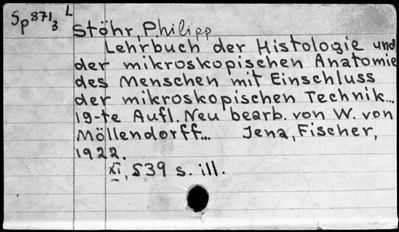 Sp 871/3 L
Stöhr, Philipp
Lehrbuch der Histologie und
der mikroskopischen Anatomie
des Menschen mit Einschluss
der mikroskopischen Technik...
19-te Aufl. Neu bearb. von W. von
Möllendorff... Jena, Fischer,
1922.
XI, 539 s. ill.